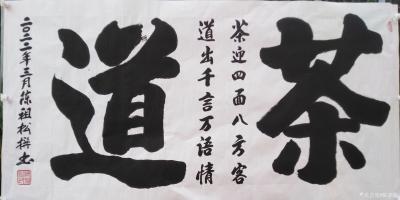 茶
茶迎四面八方客
道出千言万语情
道
二〇二二年三月徐祖松撰书